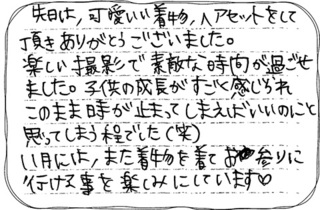 先日は,可愛いい着物,ヘアセットをして
頂きありがとうございました。
楽しい撮影で素敵な時間が過ごせ
ました。子供の成長がすごく感じられ
このまま時が止まってしまえばいいのにと
思ってしまう程でした(笑)
11月には,また着物を着てお参りに
行ける事を楽しみにしています♡